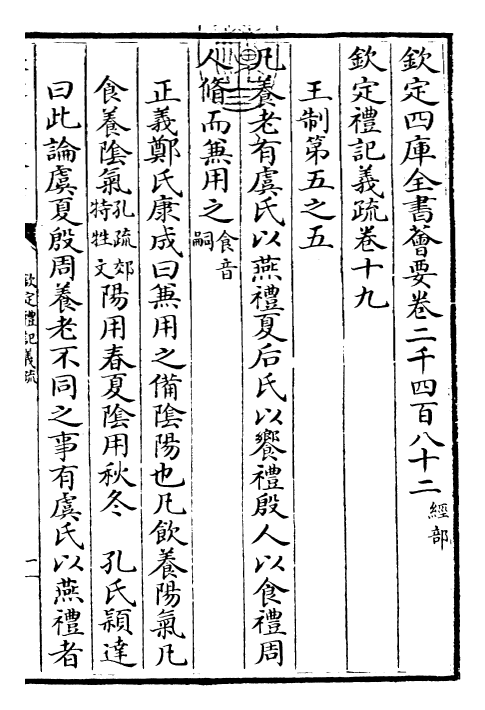 欽定四庫全書薈要卷二千四百八十二經部
欽定禮記義疏卷十九
王制第五之五
凡養老有虞氏以燕禮夏后氏以饗禮殷人以食禮周
人脩而兼用之食音嗣
正義鄭氏康成曰兼用之備陰陽也凡飲養陽氣凡
食養陰氣孔疏郊特牲文陽用春夏陰用秋冬 孔氏穎達
曰此論虞夏殷周養老不同之事有虞氏以燕禮者
欽定禮記義疏